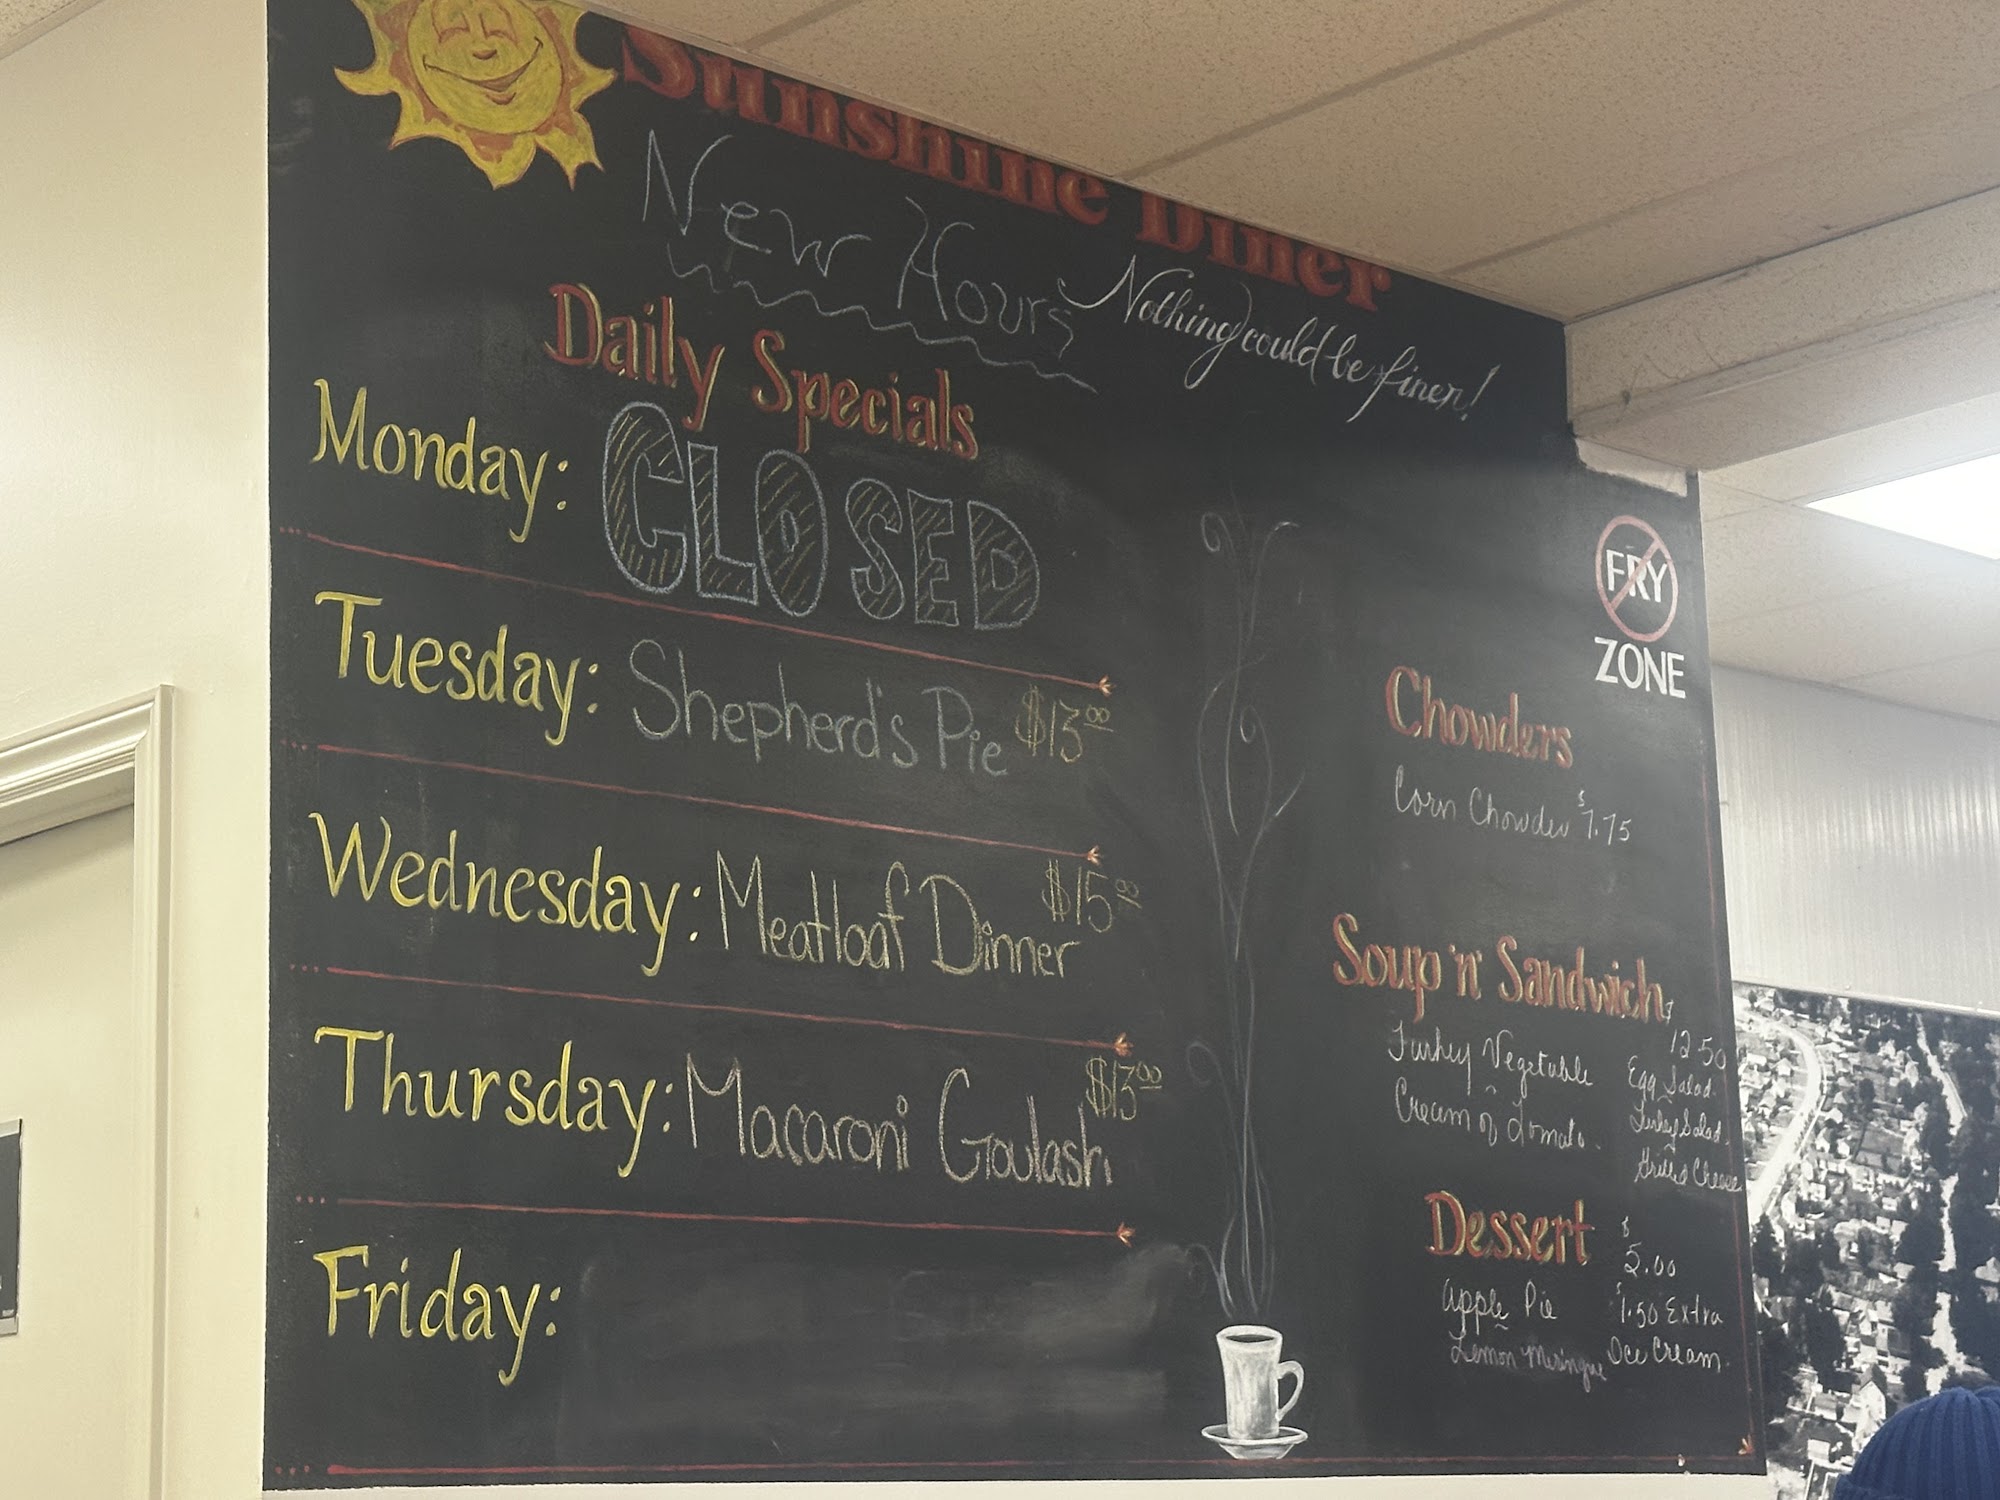 Sunshine Diner
New Hours
Nothing could be finer!
Daily Specials
Monday: CLOSED
Tuesday: Shepherd's Pie $13.00
Wednesday: Meatloaf Dinner $15.00
Thursday: Macaroni Goulash $13.00
Friday:
FRY
ZONE
Chowders
Corn Chowder $7.75
Soup 'n' Sandwich
$12.50
Turkey Vegetable
Cream of Tomato.
Egg Salad.
Turkey Salad.
Grilled Cheese
Dessert
$5.00
Apple Pie
Lemon Meringue
$1.50 Extra
Ice Cream.